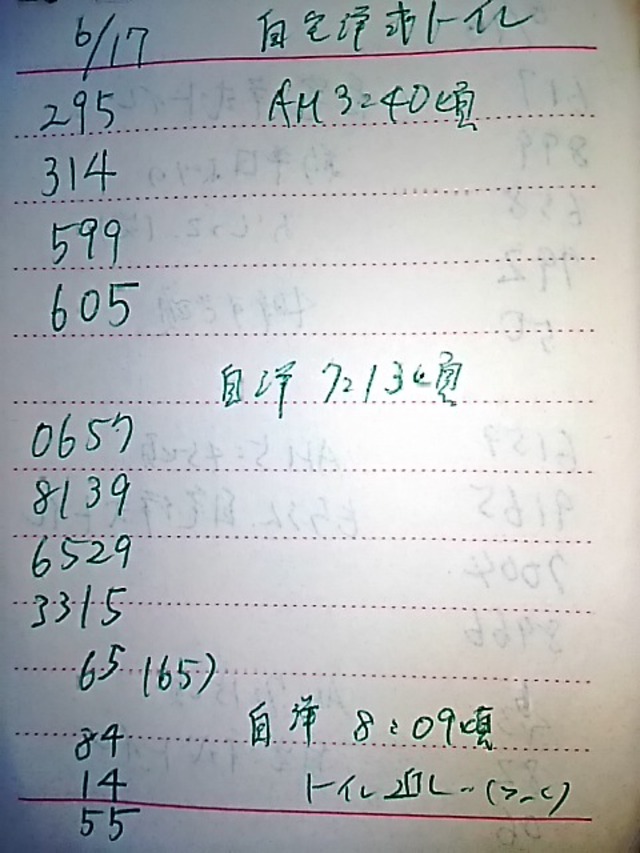 6/17 自宅洋式トイレ
295 AM 3:40頃
314
599
605
自洋 7:13頃
0657
8139
6529
3315
65 (65)
自洋 8:09頃
84
14 トイレ近し‥(>_<)
55